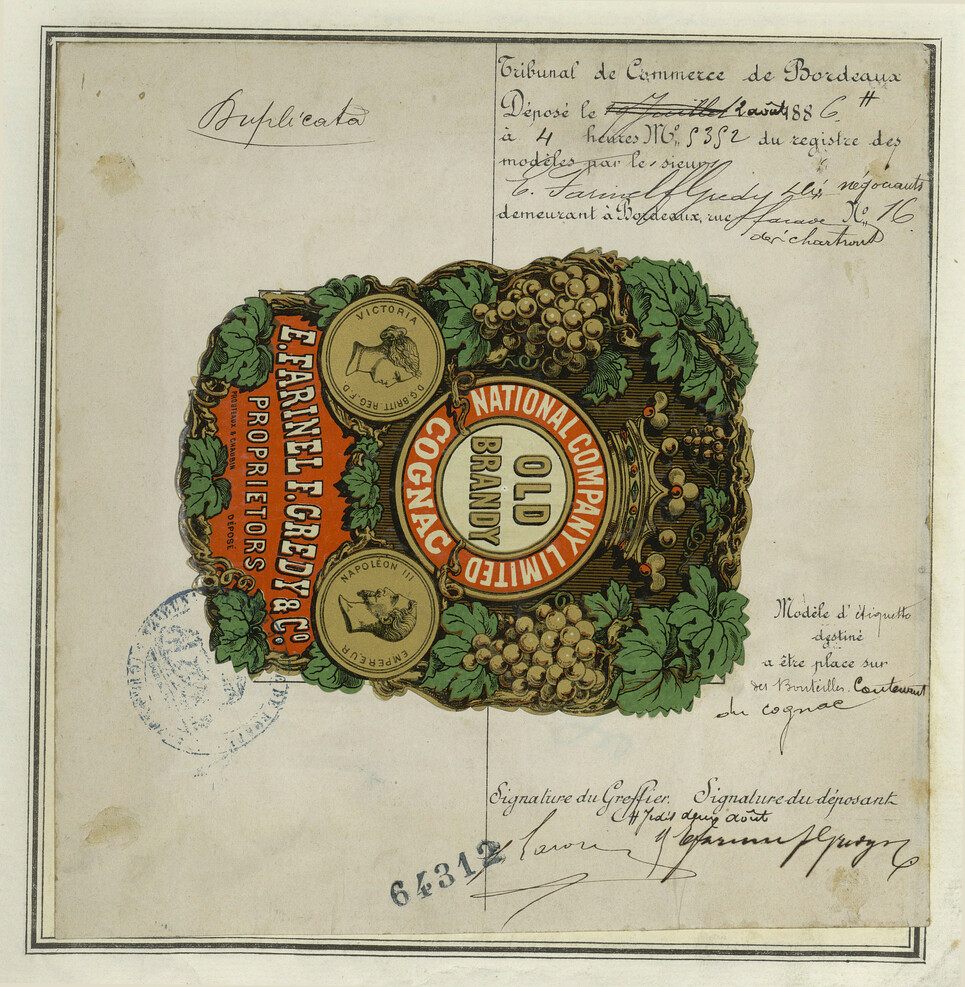 Duplicata
Tribunal de Commerce de Bordeaux
Déposé le 2 août 1886
à 4 heures No. 5352 du registre des
modèles par le sieur
E. Farinel F Gredy & Cie négociants
demeurant à Bordeaux, rue No. 16
des chartrons
NATIONAL COMPANY LIMITED
COGNAC
OLD
BRANDY
VICTORIA
D.G. BRITT. REG. F.D.
NAPOLÉON III
EMPEREUR
E. FARINEL F. GREDY & Co.
PROPRIETORS
PROUTEAUX & CHAUBIN
DÉPOSÉ
Modèle d'étiquette
destiné
a être place sur
des Bouteilles. Contenant
du cognac
Signature du Greffier. Signature du déposant
août
64312